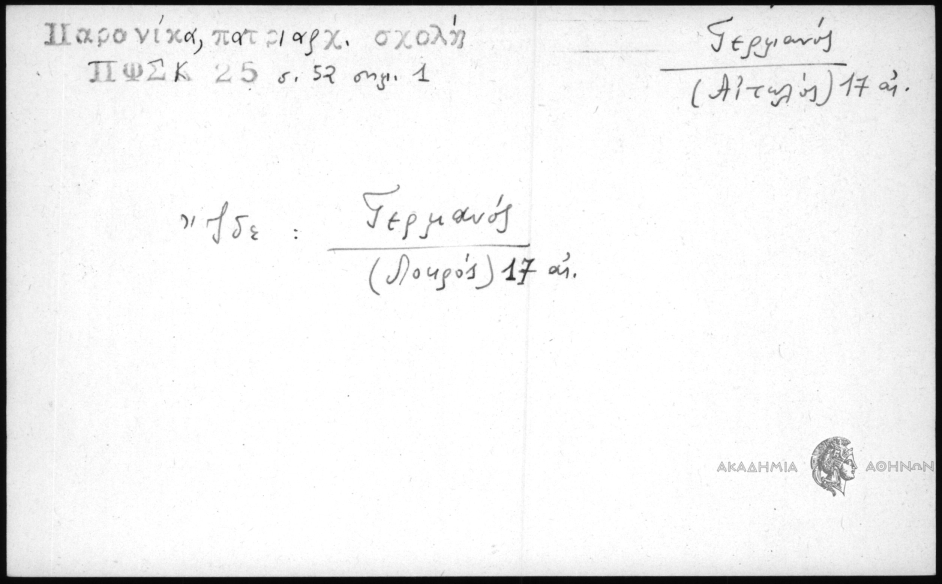 Παρανίκα, πατριαρχ. σχολή
ΠΦΣΚ 25 σ. 52 σημ. 1
Γερμανός
(Αἰτωλός) 17 αἰ.
Ἴδε : Γερμανός
(Λοκρός) 17 αἰ.
ΑΚΑΔΗΜΙΑ ΑΘΗΝΩΝ